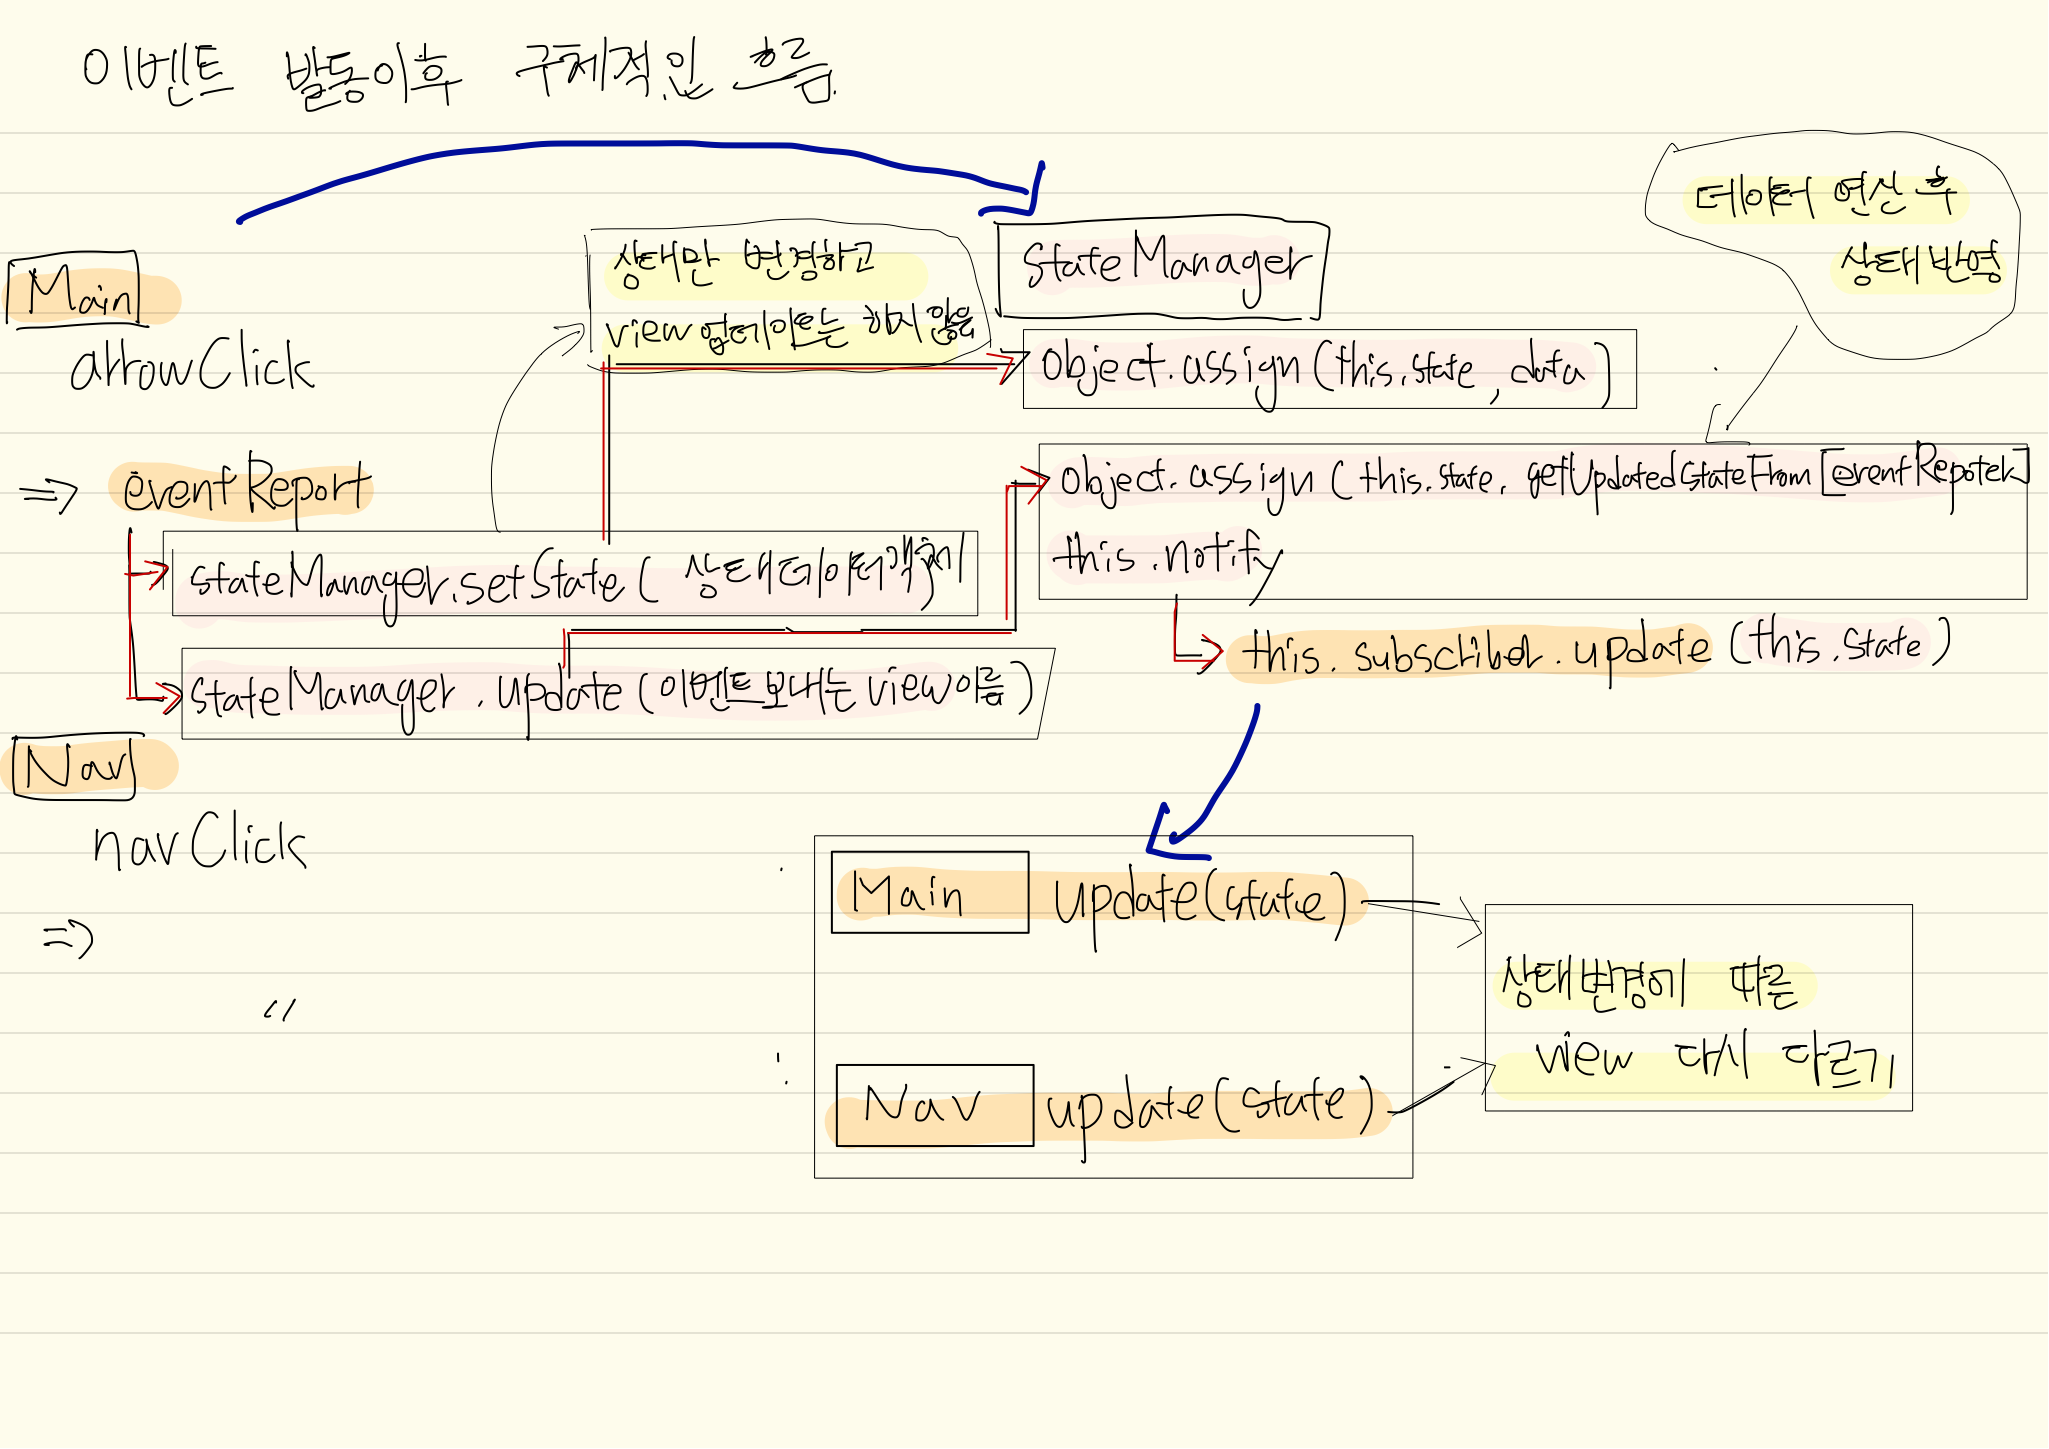 이벤트 발동이후 구체적인 흐름.
Main
arrowClick
⇒ eventReport
stateManager.setState( 상태데이터객체)
stateManager.update(이벤트보내는 view이름)
상태만 변경하고
view업데이트는 하지 않음
StateManager
object.assign(this.state, data)
데이터 연산 후
상태반영
object.assign(this.state. getUpdatedStateFrom[eventRepoter]
this.notify
this.subscriber.update(this.state)
Nav
navClick
⇒
〃
Main update(state)
Nav update(state)
상태변경에 따른
view 다시 다르기